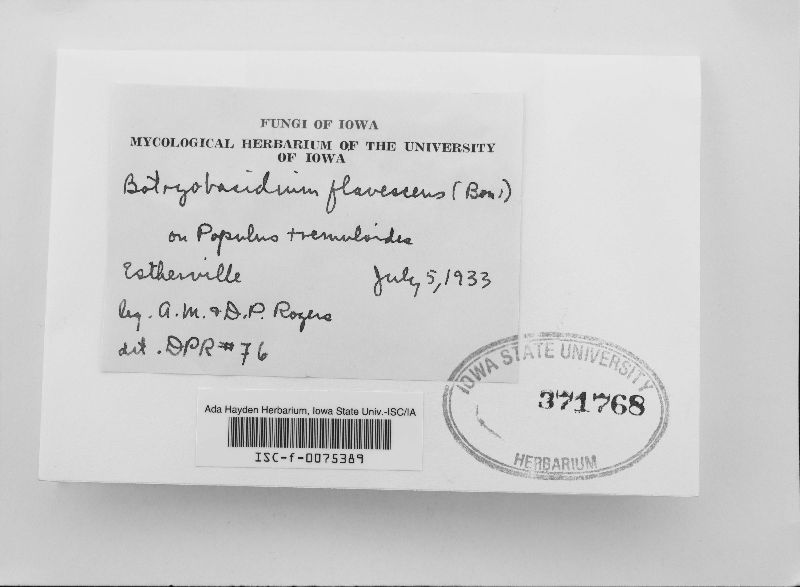 FUNGI OF IOWA
MYCOLOGICAL HERBARIUM OF THE UNIVERSITY
OF IOWA
Botryobasidium flavescens (Bon.)
on Populus tremuloides
Estherville July 5, 1933
leg. A.M. & D.P. Rogers
det. DPR #76
IOWA STATE UNIVERSITY
371768
HERBARIUM
Ada Hayden Herbarium, Iowa State Univ.-ISC/IA
ISC-f-0075389